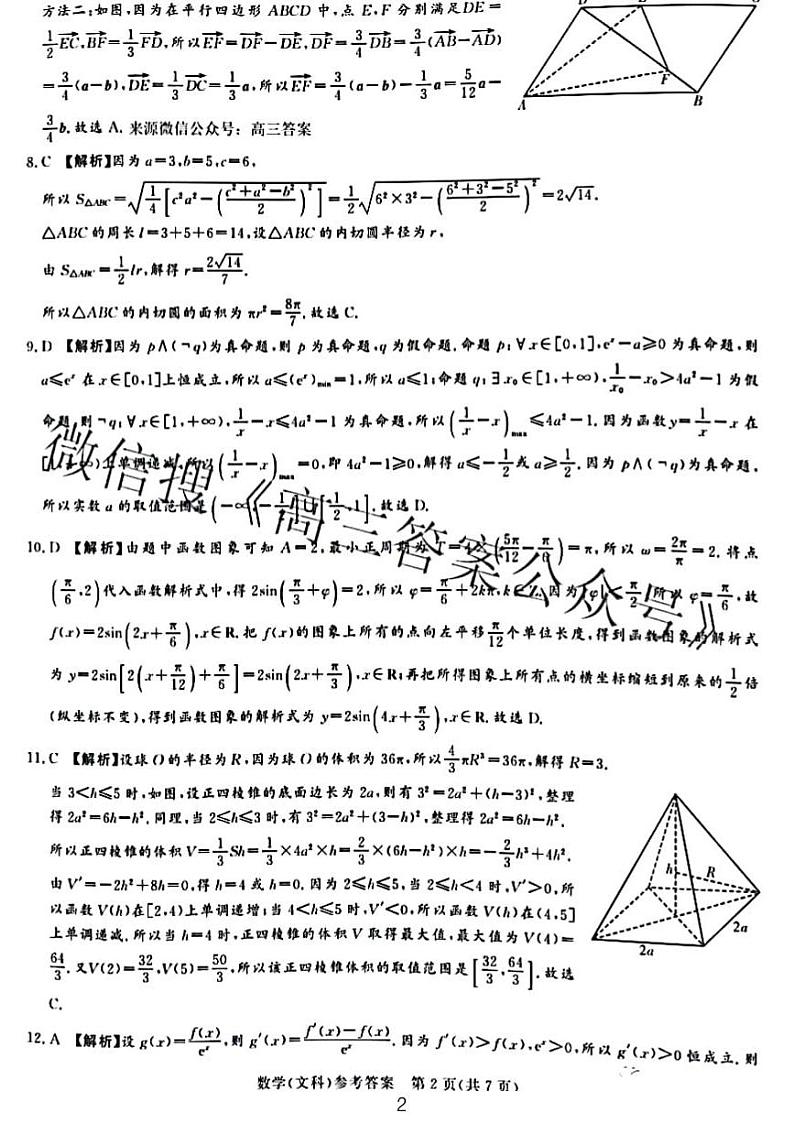 方法二:如图,因为在平行四边形 ABCD 中,点 E,F 分别满足DE=
1/2 EC,BF=1/3 FD,所以EF=DF-DE,DF=3/4 DB=3/4(AB-AD)
=3/4(a-b),DE=1/3 DC=1/3 a,所以EF=3/4(a-b)-1/3 a=5/12 a-
3/4 b.故选 A. 来源微信公众号:高三答案
A
B
F
8.C 【解析】因为 a=3,b=5,c=6,
所以 S△ABC=√(1/4[c²a²-((c²+a²-b²)/2)²])=1/2√(6²×3²-((6²+3²-5²)/2)²)=2√14.
△ABC 的周长 l=3+5+6=14,设△ABC 的内切圆半径为 r,
由 S△ABC=1/2 lr,解得 r=2√14/7.
所以△ABC 的内切圆的面积为 πr²=8π/7.故选 C.
9.D 【解析】因为 p∧(¬q)为真命题,则 p 为真命题,q 为假命题.命题 p:∀x∈[0,1],eˣ-a≥0 为真命题,则
a≤eˣ 在 x∈[0,1]上恒成立,所以 a≤(eˣ)min=1,所以 a≤1;命题 q:∃x₀∈[1,+∞),1/x₀-x₀>4a²-1 为假
命题,则¬q:∀x∈[1,+∞),1/x-x≤4a²-1 为真命题,所以(1/x-x)max≤4a²-1.因为函数y=1/x-x 在
[1,+∞)上单调递减,所以(1/x-x)max=0,即 4a²-1≥0,解得 a≤-1/2或 a≥1/2.因为 p∧(¬q)为真命题,
所以实数 a 的取值范围是(-∞,-1/2]∪[1/2,1].故选 D.
微信搜《高三答案公众号》
10.D 【解析】由题中函数图象可知 A=2,最小正周期为 T=4×(5π/12-π/6)=π,所以 ω=2π/π=2.将点
(π/6,2)代入函数解析式中,得 2sin(π/3+φ)=2,所以 φ=π/6+2kπ,k∈Z.因为|φ|<π/2,所以 φ=π/6,故
f(x)=2sin(2x+π/6),x∈R.把 f(x)的图象上所有的点向左平移π/12个单位长度,得到函数图象的解析式
为 y=2sin[2(x+π/12)+π/6]=2sin(2x+π/3),x∈R;再把所得图象上所有点的横坐标缩短到原来的1/2倍
(纵坐标不变),得到函数图象的解析式为 y=2sin(4x+π/3),x∈R.故选 D.
11.C 【解析】设球 O 的半径为 R,因为球 O 的体积为 36π,所以4/3πR³=36π,解得 R=3.
当 3<h≤5 时,如图,设正四棱锥的底面边长为 2a,则有 3²=2a²+(h-3)²,整理
得 2a²=6h-h².同理,当 2≤h≤3 时,有 3²=2a²+(3-h)²,整理得 2a²=6h-h².
所以正四棱锥的体积 V=1/3 Sh=1/3×4a²×h=2/3×(6h-h²)×h=-2/3h³+4h².
由 V′=-2h²+8h=0,得 h=4 或 h=0.因为 2≤h≤5,当 2≤h<4 时,V′>0,所
以函数 V(h)在[2,4)上单调递增;当 4<h≤5 时,V′<0,所以函数 V(h)在(4,5]
上单调递减.所以当 h=4 时,正四棱锥的体积 V 取得最大值,最大值为 V(4)=
64/3.又V(2)=32/3,V(5)=50/3,所以该正四棱锥体积的取值范围是[32/3,64/3].故选
C.
h
R
2a
2a
12.A 【解析】设 g(x)=f(x)/eˣ,则 g′(x)=(f′(x)-f(x))/eˣ.因为 f′(x)>f(x),eˣ>0,所以 g′(x)>0 恒成立.则
数学(文科)参考答案 第 2 页(共 7 页)
2